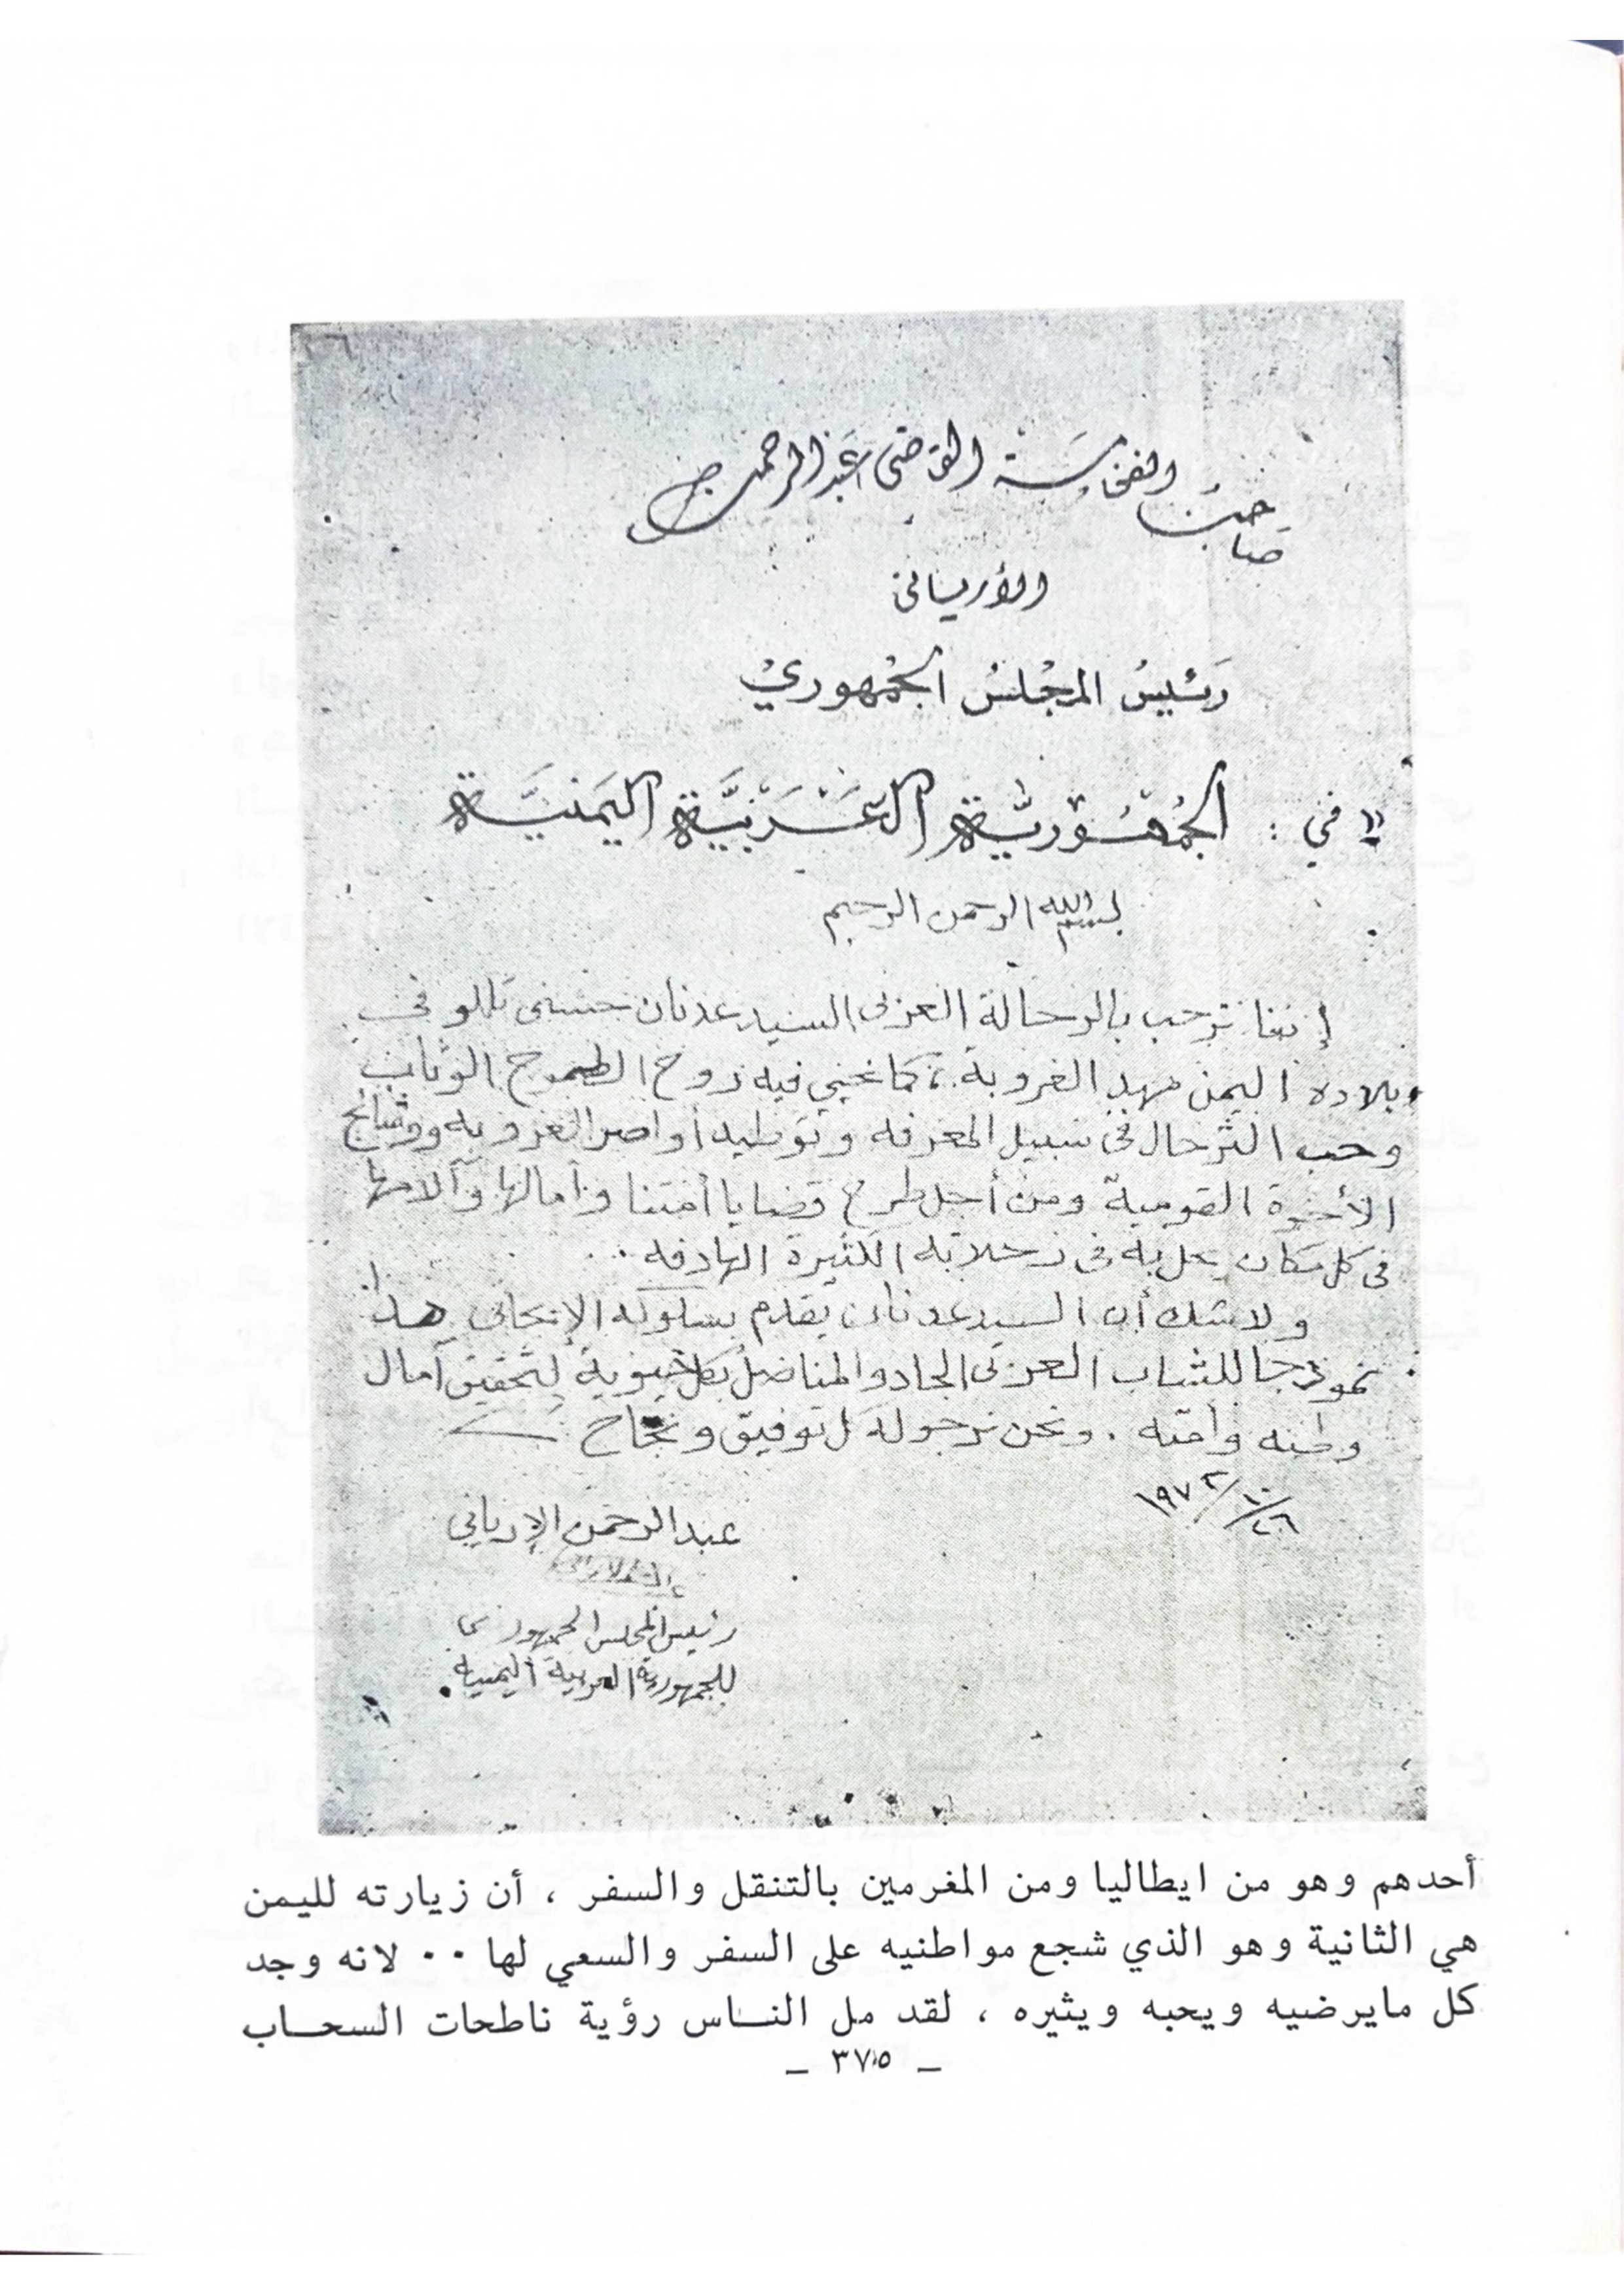 صاحب الفخامة القاضي عبد الرحمن
الأرياني
رَئيسُ المجْلسُ الجُمْهوريْ
في : الجُمْهُوْريَّة العَرَبيَّة اليَمَنيَّة
بسم الله الرحمن الرحيم
إننا نرحب بالرحالة العربى السيد عدنان حسنى تللو فى
بلاده اليمن مهد العروبة ، كما نحيي فيه روح الطموح الوثاب
وحب الترحال فى سبيل المعرفه وتوطيد أواصر العروبه ووشائج
الأخوة القومية ومن أجل طرح قضايا أمتنا وآمالها وآلامها
فى كل مكان يحل به فى رحلاته الكثيرة الهادفه ..
ولا شك أن السيد عدنان يقدم بسلوكه الإيجابى هذا
نموذجا للشباب العربى الجاد والمناضل بكل حيوية لتحقيق آمال
وطنه وأمته . ونحن نرجو له كل توفيق ونجاح
٢٦/١٠/١٩٧٢
عبد الرحمن الإرياني
رئيس المجلس الجمهوري
للجمهورية العربية اليمنية
أحدهم وهو من ايطاليا ومن المغرمين بالتنقل والسفر ، أن زيارته لليمن
هي الثانية وهو الذي شجع مواطنيه على السفر والسعي لها ٠٠ لانه وجد
كل مايرضيه ويحبه ويثيره ، لقد مل النـاس رؤية ناطحات السحـاب
_ ٣٧٥ _